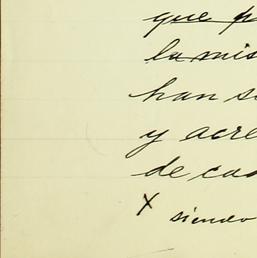 que p
la mis
han s
y acre
de cad
x siendo